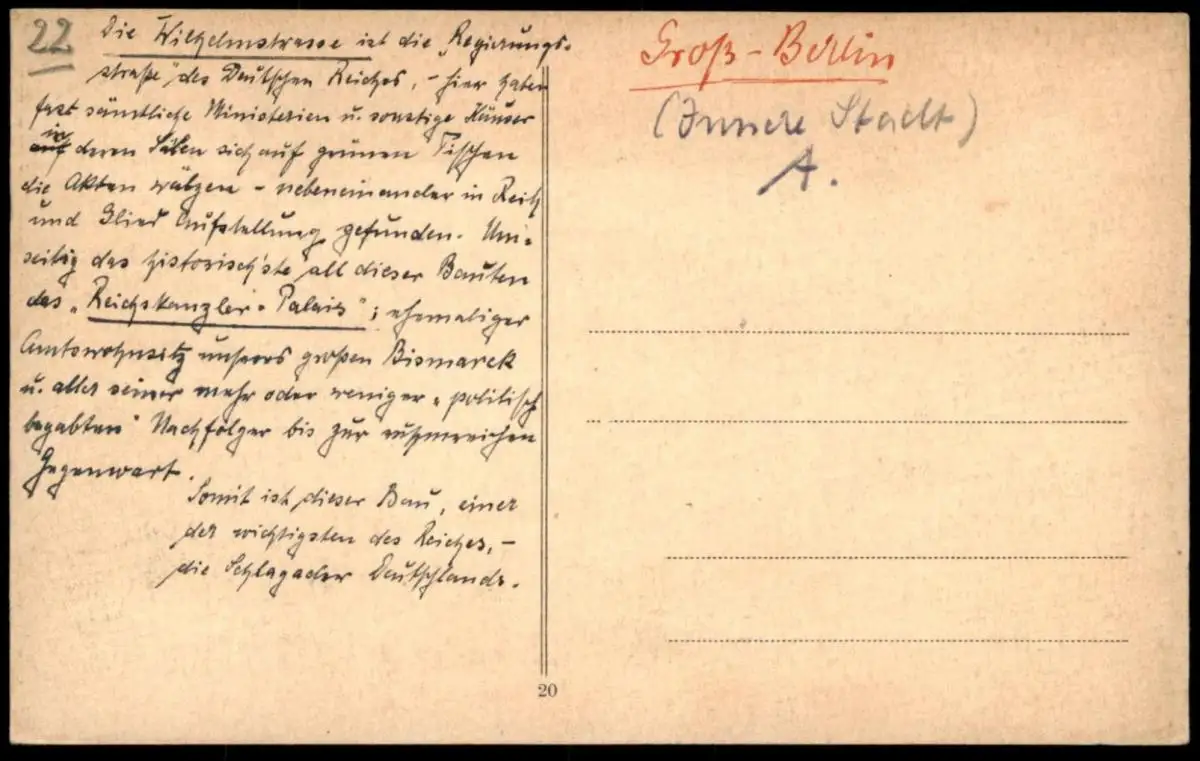 22
Die Wilhelmstrasse ist die „Regierungs-
straße" des Deutschen Reiches, - hier haben
fast sämtliche Ministerien u. sonstige Häuser
in deren Sälen sich auf grünen Tischen
die Akten wälzen - nebeneinander in Reih
und Glied Aufstellung gefunden. Um-
seitig das historischste all dieser Bauten
das „Reichskanzler-Palais"; ehemaliger
Amtswohnsitz unseres großen Bismarck
u. aller seiner mehr oder weniger „politisch
begabten" Nachfolger bis zur ruhmreichen
Gegenwart.
Somit ist dieser Bau, einer
der wichtigsten des Reiches, -
die Schlagader Deutschlands.
Groß-Berlin
(Innere Stadt)
A.
20